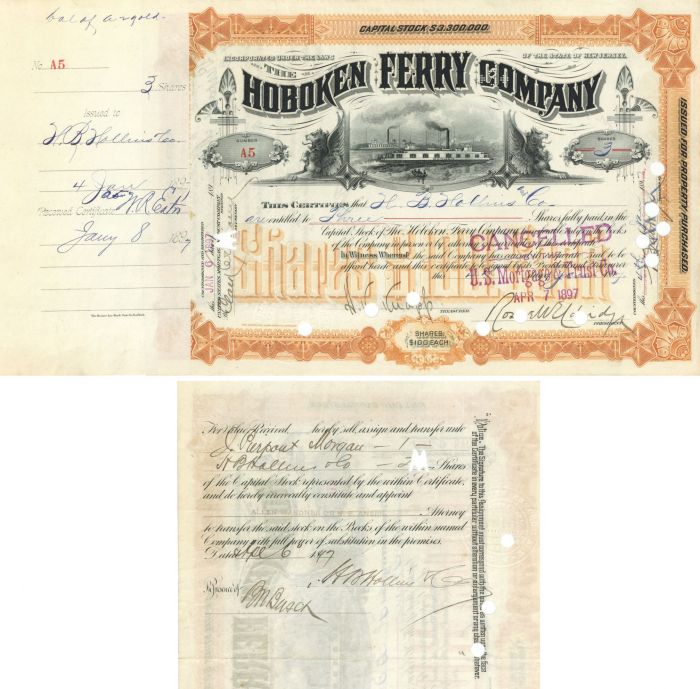 bal of
No. A5
3 Shares
Issued to
H.B. Hollins & Co
4 Jan 189
Received Certificate
Jany 8 1897
CAPITAL STOCK $3,300,000.
INCORPORATED UNDER THE LAWS OF THE STATE OF NEW JERSEY.
THE
HOBOKEN FERRY COMPANY
NUMBER
A5
SHARES
3
ISSUED FOR PROPERTY PURCHASED.
This Certifies that H. B. Hollins and Co
are entitled to Three Shares fully paid in the
Capital Stock of The Hoboken Ferry Company
of the Company in person or by
In Witness Whereof the said Company has caused seal to be
affixed hereto and this certificate
this
Shares
CANCELLED
U.S. Mortgage & Trust Co.
APR 7 1897
JAN 6 1897
TREASURER
PRESIDENT
SHARES
$100 EACH
For Value Received hereby sell, assign and transfer unto
J. Pierpont Morgan - 1 -
H B Hollins & Co - Shares
of the Capital Stock represented by the within Certificate,
and do hereby irrevocably constitute and appoint
Attorney
to transfer the said stock on the Books of the within named
Company with full power of substitution in the premises.
Dated Apl 6 1897
H B Hollins & Co
In Presence of
Notice. The Signature to this Assignment must correspond with the name as written upon the face
of the Certificate in every particular without alteration or enlargement or any change whatever.